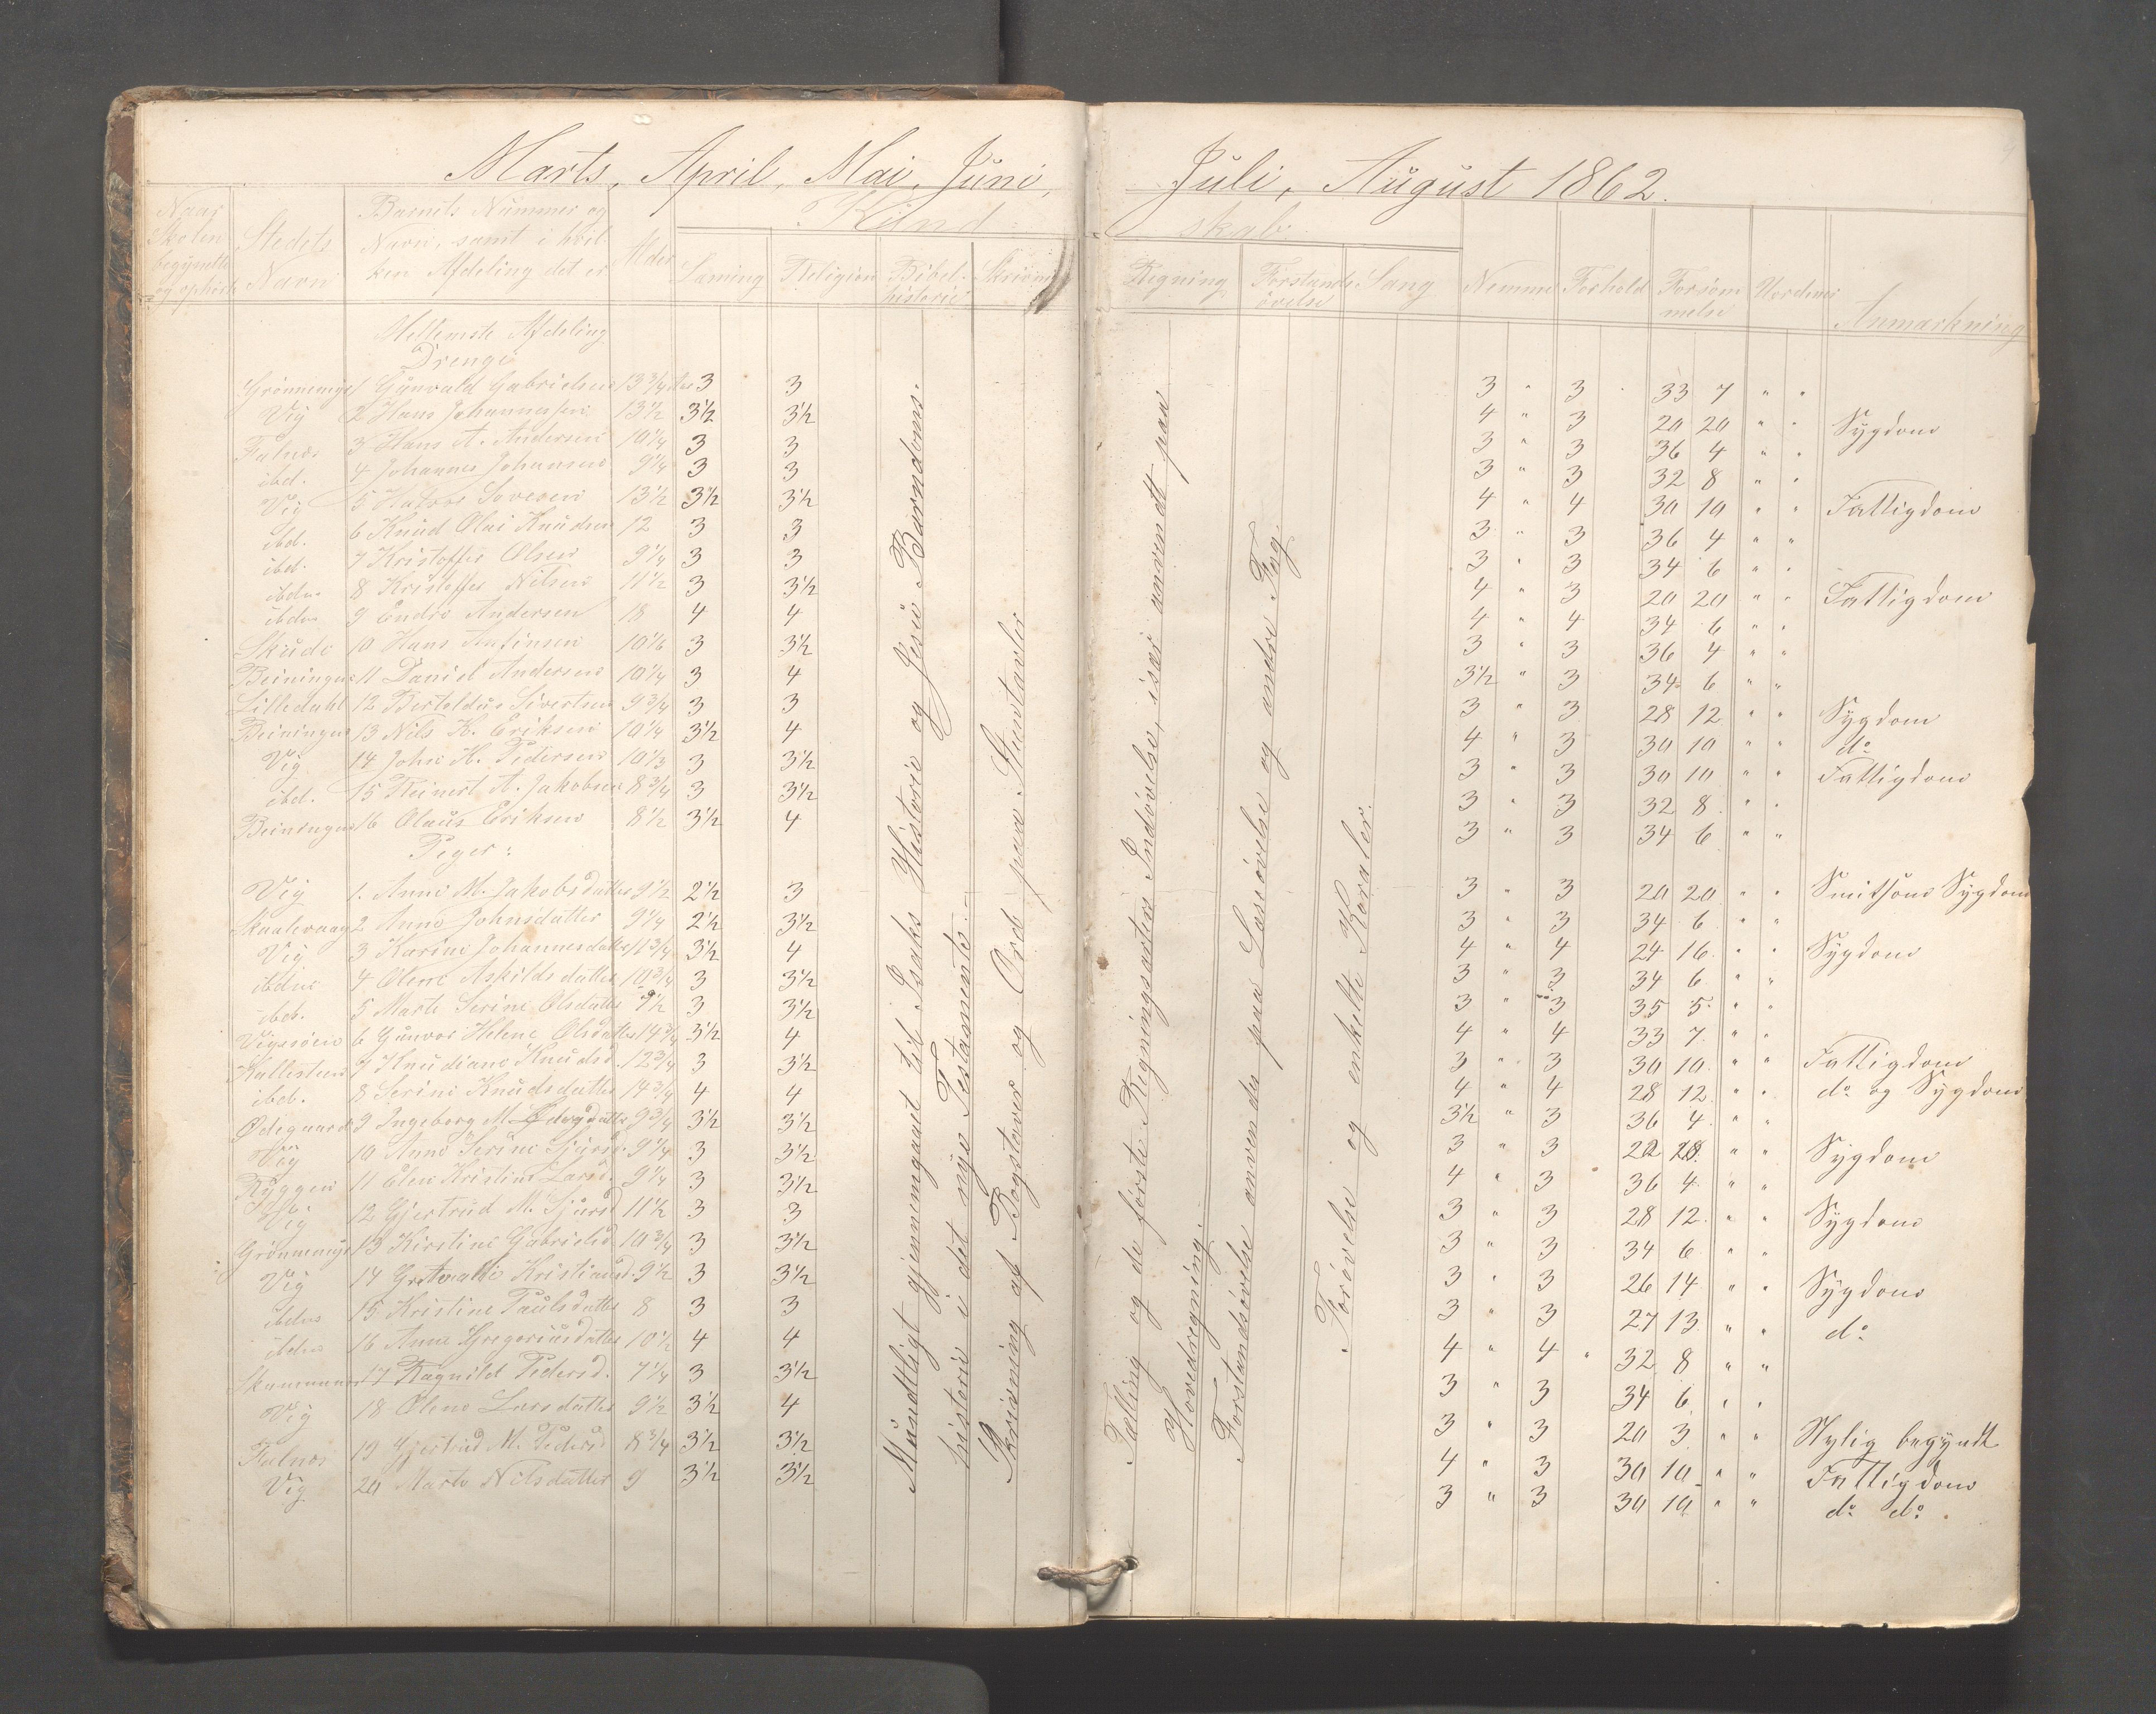 Marts, April, Mai, Juni, Juli, August 1862.
Naar Skolen begyndte og ophørte
Stedets Navn
Barnets Nummer og Navn, samt i hvilken Afdeling det er
Alder
Kundskab:
Læsning
Religion
Bibelhistorie
Skrivning
Regning
Forstandsøvelse
Sang
Nemme
Forhold
Forsømmelse
Uordener
Anmærkning
Mellemste Afdeling
Drenge
1 Gunvald Gabrielsen 13 3/4 Aar 3 3 3 " 3 33 7 " "
Vig 2 Hans Johannesen 13 1/2 3 1/2 3 1/2 4 " 3 20 20 " " Sygdom
Falnes 3 Hans A. Andersen 10 1/4 3 3 3 " 3 36 4 " "
ibd. 4 Johannes Johansen 9 1/4 3 3 3 " 3 32 8 " "
Vig 5 13 1/2 3 1/2 3 1/2 4 " 4 30 10 " " Fattigdom
ibd. 6 Knud Olai Knudsen 12 3 3 3 " 3 36 4 " "
ibd. 7 Kristoffer Olsen 9 1/4 3 3 3 " 3 34 6 " "
ibdm 8 Kristoffer Nilsen 11 1/2 3 3 1/2 4 " 3 20 20 " " Fattigdom
ibdm 9 Endre Andersen 18 4 4 4 " 4 34 6 " "
Skude 10 Hans 10 1/6 3 3 1/2 3 " 3 36 4 " "
11 Daniel Andersen 10 1/4 3 4 3 1/2 " 3 34 6 " "
Lilledahl 12 Sivertsen 9 3/4 3 3 3 " 3 28 12 " " Sygdom
13 Nils H. Eriksen 10 1/4 3 1/2 4 4 " 3 30 10 " " do
Vig 14 John H. Pedersen 10 1/3 3 3 1/2 3 " 3 30 10 " " Fattigdom
ibd. 15 Reinert A. Jakobsen 8 3/4 3 3 1/2 3 " 3 32 8 " "
16 Olaus Eriksen 8 1/2 3 1/2 4 3 " 3 34 6 " "
Piger:
Vig 1. Anne M. Jakobsdatter 9 1/2 2 1/2 3 3 " 3 20 20 " " Smitsom Sygdom
2 Anne Johnsdatter 9 1/4 2 1/2 3 1/2 3 " 3 34 6 " "
Vig 3 Karine Johannesdatter 11 3/4 3 1/2 4 4 " 4 24 16 " " Sygdom
ibdm 4 Olene Askildsdatter 10 3/4 3 3 1/2 3 " 3 34 6 " "
ibd. 5 Marte Serine Olsdatter 9 1/2 3 3 1/2 3 " 3 35 5 " "
6 Gunvor Helene Olsdatter 14 3/4 3 1/2 4 4 " 4 33 7 " "
7 Knudiane Knudsd. 12 3/4 3 3 1/2 3 " 3 30 10 " " Fattigdom
ibd. 8 Serine Knudsdatter 14 3/4 4 4 4 " 4 28 12 " " do og Sygdom
Ødegaard 9 Ingeborg M. 9 3/4 3 1/2 3 1/2 3 1/2 " 3 36 4 " "
Vig 10 Anne Serine Sjursd. 9 1/4 3 3 1/2 3 " 3 " " Sygdom
Ryggen 11 Elen Kristine Larsd. 9 1/4 3 3 1/2 4 " 3 36 4 " "
Vig 12 Gjertrud M. Sjursd 11 1/2 3 3 3 " 3 28 12 " " Sygdom
13 Kirstine Gabrielsd 10 3/4 3 3 1/2 3 " 3 34 6 " "
Vig 14 Kristiansd. 9 1/2 3 3 1/2 3 " 3 26 14 " " Sygdom
ibdm 15 Kristine Paulsdatter 8 3 3 3 " 3 27 13 " " do
ibdm 16 Anne Gregoriusdatter 10 1/2 4 4 4 " 4 32 8 " "
17 Ragnild Pedersd. 7 1/4 3 3 1/2 3 " 3 34 6 " "
Vig 18 Olene Larsdatter 9 1/2 3 1/2 4 3 " 3 20 3 " " Nylig begyndt
Falnes 19 Gjertrud M. Pedersd 8 3/4 3 1/2 3 1/2 4 " 3 30 10 " " Fattigdom
Vig 20 Marte Nilsdatter 9 3 1/2 3 1/2 3 " 3 30 10 " " do do.
Mundtligt gjennemgaaet til Isaks Historie og Jesu Barndoms-
historie i det nye Testamente.
Skrivning af Bogstaver og Ord paa Stentavler
Tælling og de første Regningsarters Indøvelse, især anvendt paa
Hovedregning.
Forstandsøvelse anvendes paa Læseøvelse og andre Fag
Forøvelse og enkelte Koraler.